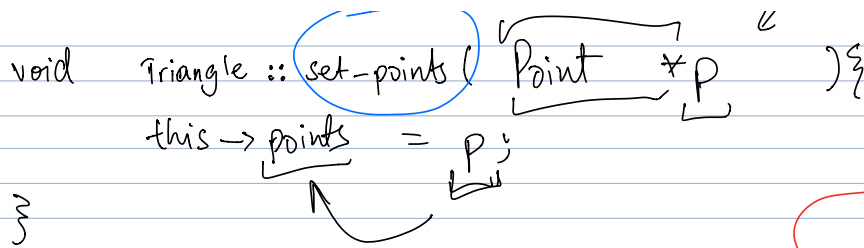 void Triangle :: set_points( Point *p ){
this -> points = p;
}